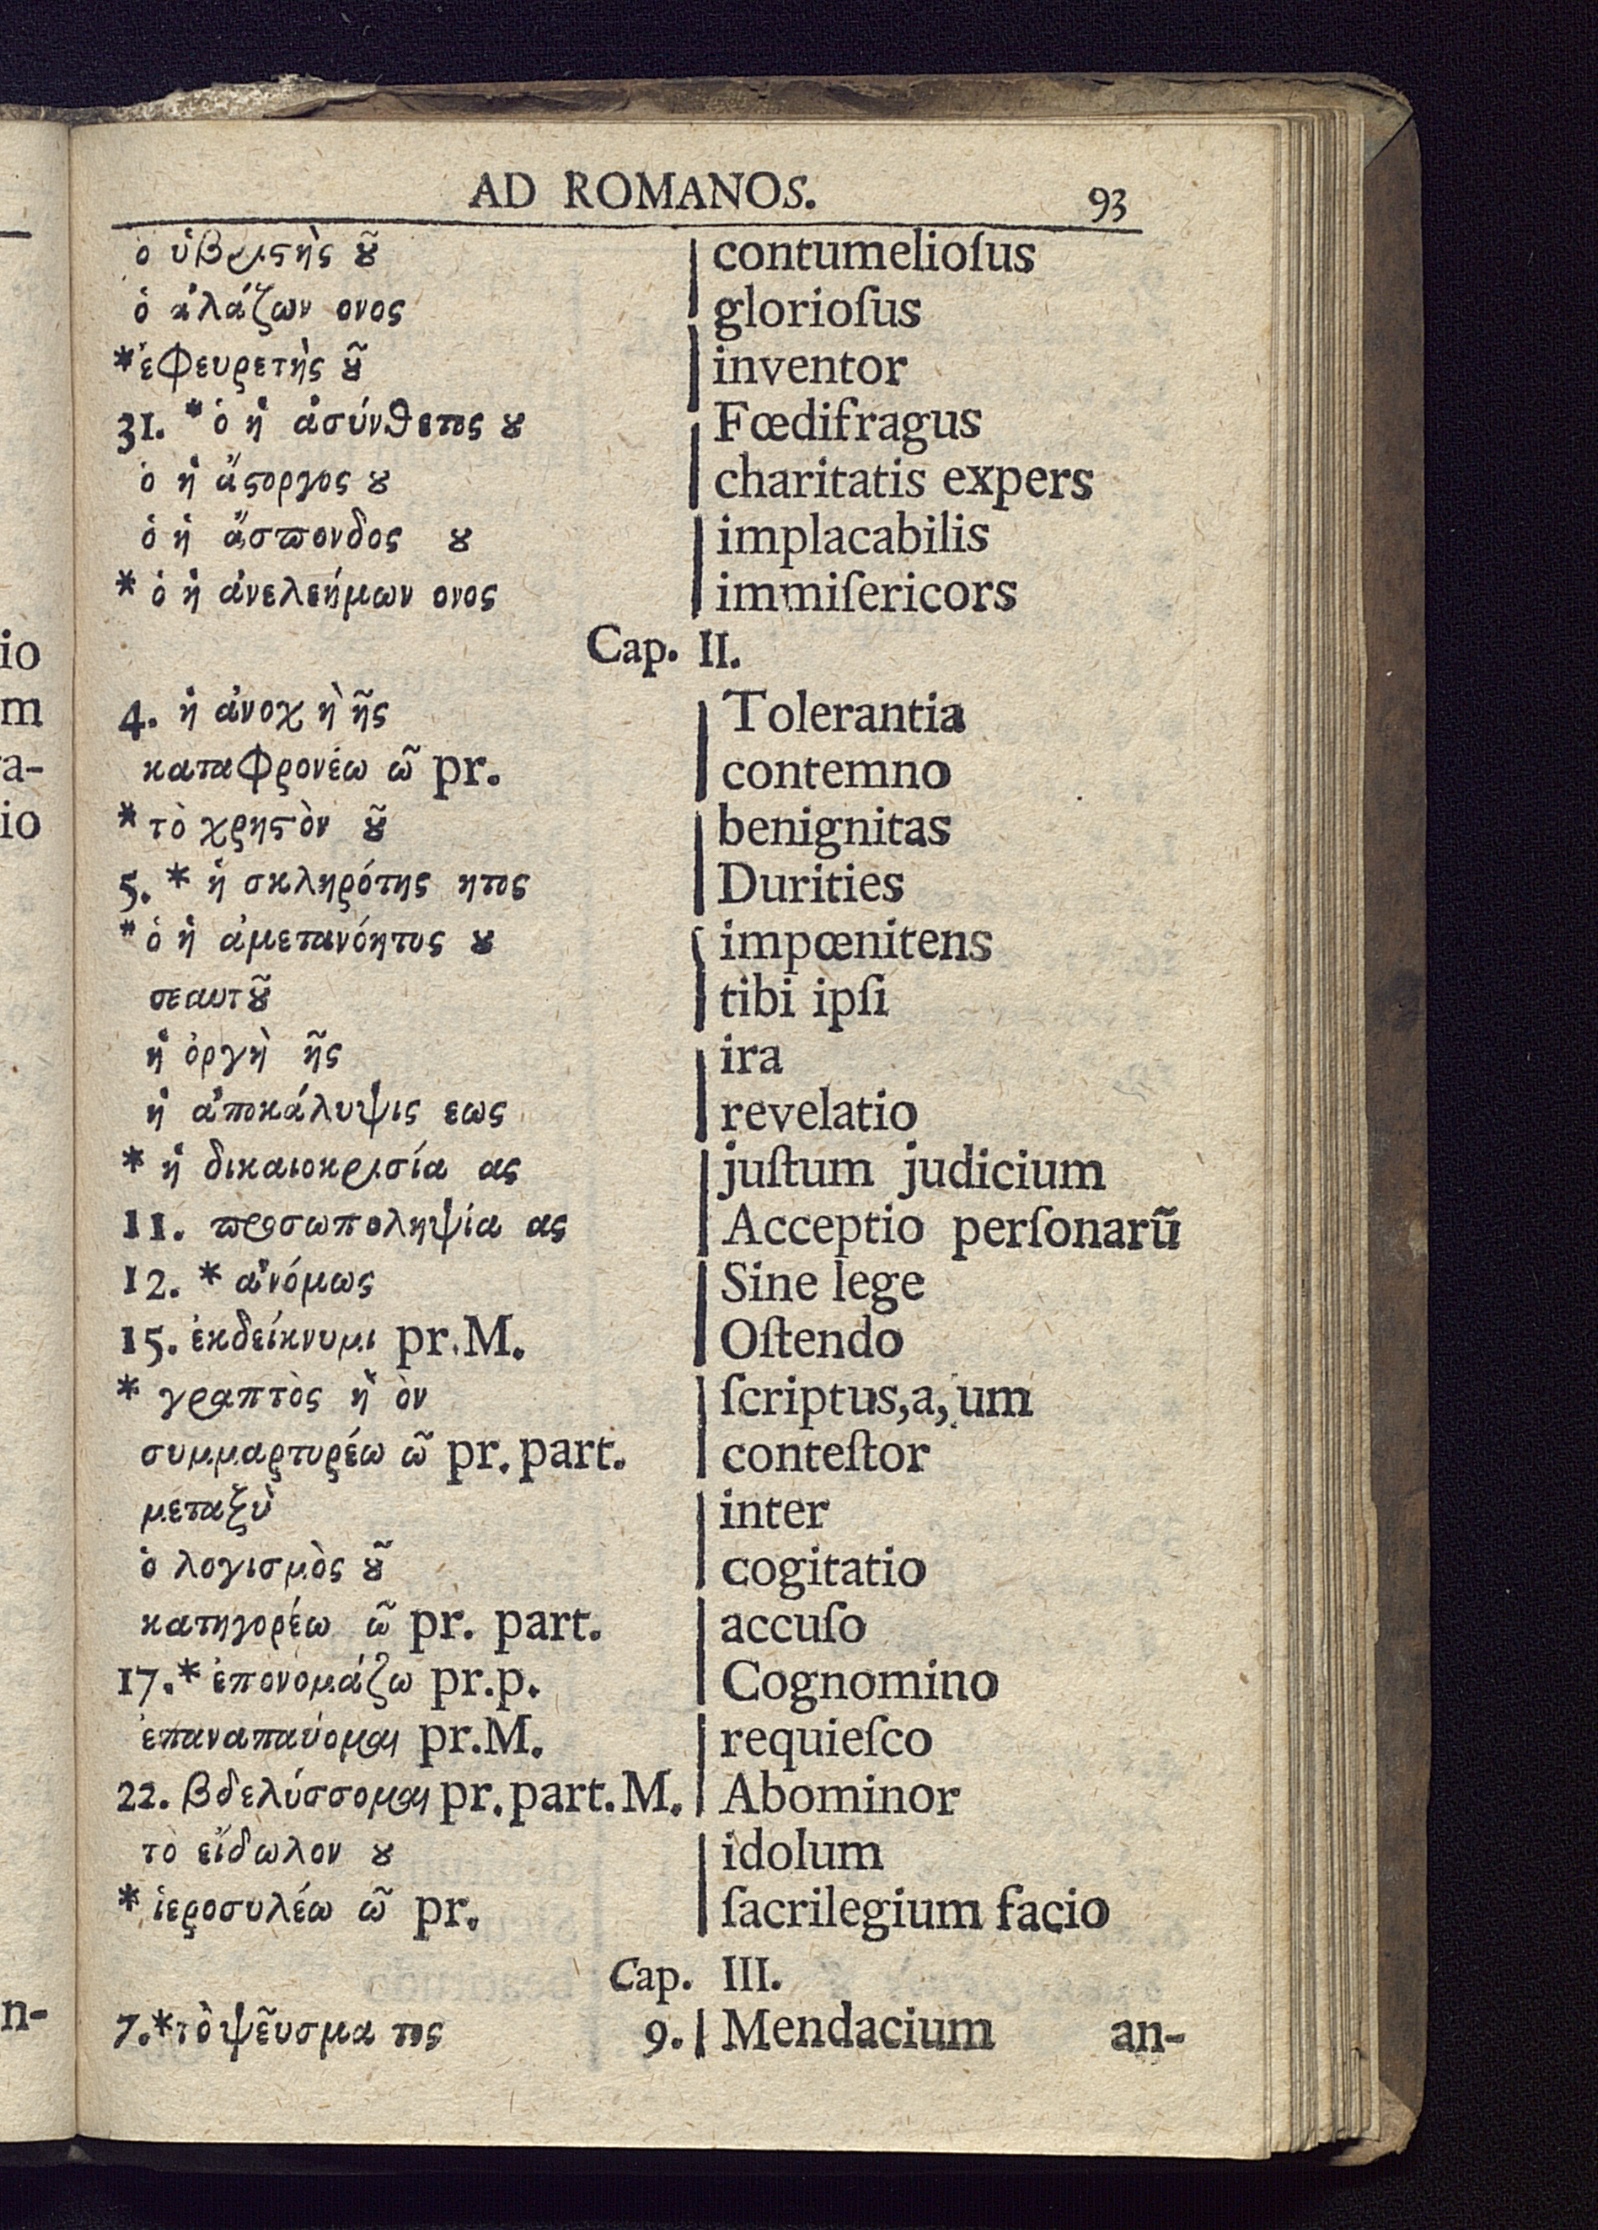 AD ROMANOS. 93
ὁ ὑβριϛὴς ȣ͂ contumelioſus
ὁ ἀλάζων ονος glorioſus
*ἐφευρετὴς ȣ͂ inventor
31. * ὁ ἡ ἀσύνθετος ȣ Fœdifragus
ὁ ἡ ἄϛοργος ȣ charitatis expers
ὁ ἡ ἄσπονδος ȣ implacabilis
* ὁ ἡ ἀνελεήμων ονος immiſericors
Cap. II.
4. ἡ ἀνοχὴ ῆς Tolerantia
καταφρονέω ῶ pr. contemno
* τὸ χρηϛὸν ȣ͂ benignitas
5. * ἡ σκληρότης ητος Durities
* ὁ ἡ ἀμετανόητος ȣ impœnitens
σεαυτȣ͂ tibi ipſi
ἡ ὀργὴ ῆς ira
ἡ ἀποκάλυψις εως revelatio
* ἡ δικαιοκρισία ας juſtum judicium
11. προσωποληψία ας Acceptio perſonarũ
12. * ἀνόμως Sine lege
15. ἐκδείκνυμι pr.M. Oſtendo
* γραπτὸς ὴ ὸν ſcriptus,a, um
συμμαρτυρέω ῶ pr. part. conteſtor
μεταξὺ inter
ὁ λογισμὸς ȣ͂ cogitatio
κατηγορέω ῶ pr. part. accuſo
17.* ἐπονομάζω pr.p. Cognomino
ἐπαναπαύομαι pr.M. requieſco
22. βδελύσσομαι pr. part. M. Abominor
τὸ εἴδωλον ȣ idolum
* ἱεροσυλέω ῶ pr. ſacrilegium facio
Cap. III.
7.*τὸ ψεῦσμα τος 9. Mendacium an-